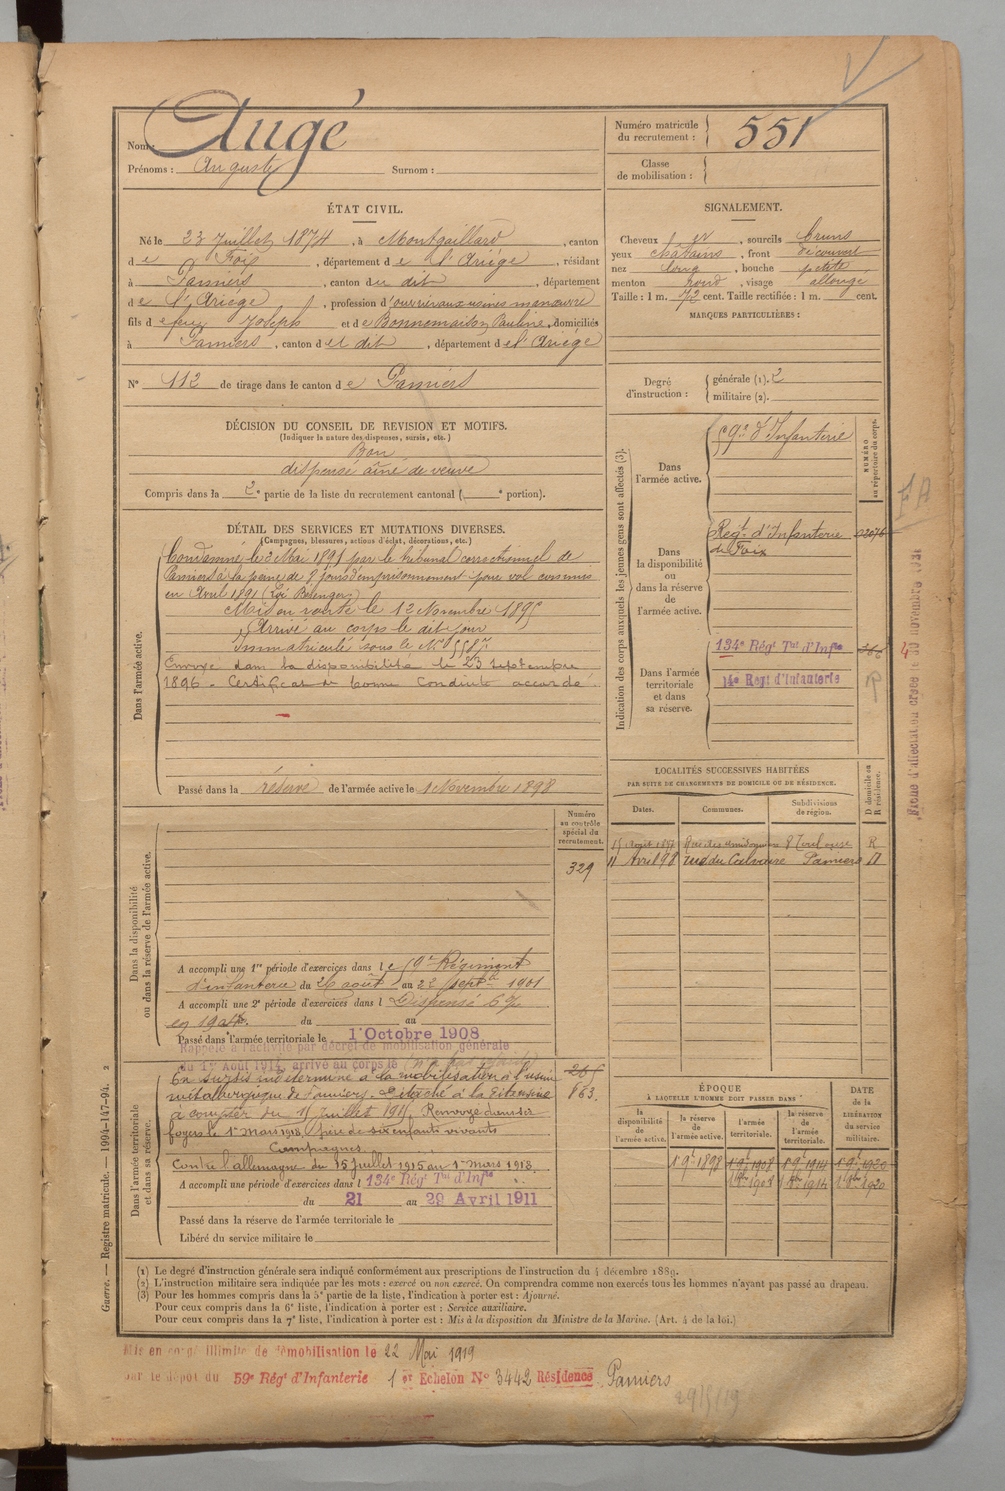 Nom : Augé
Prénoms : Auguste Surnom :
Numéro matricule du recrutement : 551
Classe de mobilisation :
ÉTAT CIVIL.
Né le 23 Juillet 1874, à Montgaillard, canton
de Foix, département de l'Ariège, résidant
à Pamiers, canton du dit, département
de l'Ariège, profession d'ouvrier aux usines manœuvre
fils de feu Joseph et de Bonnemaison Pauline, domiciliés
à Pamiers, canton du dit, département de l'Ariège
N° 112 de tirage dans le canton de Pamiers
DÉCISION DU CONSEIL DE REVISION ET MOTIFS.
(Indiquer la nature des dispenses, sursis, etc.)
Bon
dispensé aîné de veuve
Compris dans la 2e partie de la liste du recrutement cantonal ( e portion).
SIGNALEMENT.
Cheveux et, sourcils bruns
yeux châtains, front découvert
nez long, bouche petite
menton rond, visage allongé
Taille : 1 m. 72 cent. Taille rectifiée : 1 m. cent.
MARQUES PARTICULIÈRES :
Degré d'instruction : générale (1). 2
militaire (2).
DÉTAIL DES SERVICES ET MUTATIONS DIVERSES.
(Campagnes, blessures, actions d'éclat, décorations, etc.)
Dans l'armée active.
Condamné le 3 Mai 1891 par le tribunal correctionnel de
Pamiers à la peine de 8 jours d'emprisonnement pour vol commis
en Avril 1891 (Loi Bérenger)
Mis en route le 12 Novembre 1895
Arrivé au corps le dit jour
Immatriculé sous le N°
Envoyé dans la disponibilité le 23 septembre
1896. Certificat de bonne conduite accordé
Passé dans la réserve de l'armée active le 1 Novembre 1898
Indication des corps auxquels les jeunes gens sont affectés (3).
NUMÉRO au répertoire du corps.
Dans l'armée active.
59e d'Infanterie
Dans la disponibilité ou dans la réserve de l'armée active.
Regt d'Infanterie
de Foix
Dans l'armée territoriale et dans sa réserve.
134e Régt Tal d'Infie
14e Regt d'Infanterie
LOCALITÉS SUCCESSIVES HABITÉES
PAR SUITE DE CHANGEMENTS DE DOMICILE OU DE RÉSIDENCE.
Dates. Communes. Subdivisions de région. D domicile ou R résidence.
15 Août 1897 R
11 Avril 98 rue du Calvaire Pamiers D
Dans la disponibilité ou dans la réserve de l'armée active.
Numéro au contrôle spécial du recrutement.
329
A accompli une 1re période d'exercices dans le 59e Régiment
d'infanterie du 26 août au 22 septbre 1901
A accompli une 2e période d'exercices dans l Dispensé
en 1904. du au
Passé dans l'armée territoriale le 1er Octobre 1908
Rappelé à l'activité par décret de mobilisation générale
du 1er Août 1914, arrivé au corps le
Dans l'armée territoriale et dans sa réserve.
En sursis indéterminé à la mobilisation à l'usine
métallurgique de Pamiers. Détaché à la dite usine
863.
à compter du 15 Juillet 1915. Renvoyé dans ses
foyers le 1er mars 1918, père de six enfants vivants
Campagnes
Contre l'allemagne du 15 juillet 1915 au 1er mars 1918.
A accompli une période d'exercices dans l 134e Régt Tal d'Infie
du 21 au 29 Avril 1911
Passé dans la réserve de l'armée territoriale le
Libéré du service militaire le
ÉPOQUE
À LAQUELLE L'HOMME DOIT PASSER DANS
la disponibilité de l'armée active. la réserve de l'armée active. l'armée territoriale. la réserve de l'armée territoriale. DATE de la LIBÉRATION du service militaire.
1 9e 1898 1 9e 1908 1 9e 1914 1 9e 1920
1 8bre 1908 1 8bre 1914 1 8bre 1920
(1) Le degré d'instruction générale sera indiqué conformément aux prescriptions de l'instruction du 4 décembre 1889.
(2) L'instruction militaire sera indiquée par les mots : exercé ou non exercé. On comprendra comme non exercés tous les hommes n'ayant pas passé au drapeau.
(3) Pour les hommes compris dans la 5e partie de la liste, l'indication à porter est : Ajourné.
Pour ceux compris dans la 6e liste, l'indication à porter est : Service auxiliaire.
Pour ceux compris dans la 7e liste, l'indication à porter est : Mis à la disposition du Ministre de la Marine. (Art. 4 de la loi.)
Guerre. — Registre matricule. — 1994-147-94. 2
Mis en congé illimité de démobilisation le 22 Mai 1919
par le dépôt du 59e Régt d'Infanterie 1er Echelon N° 3442 Résidence Pamiers